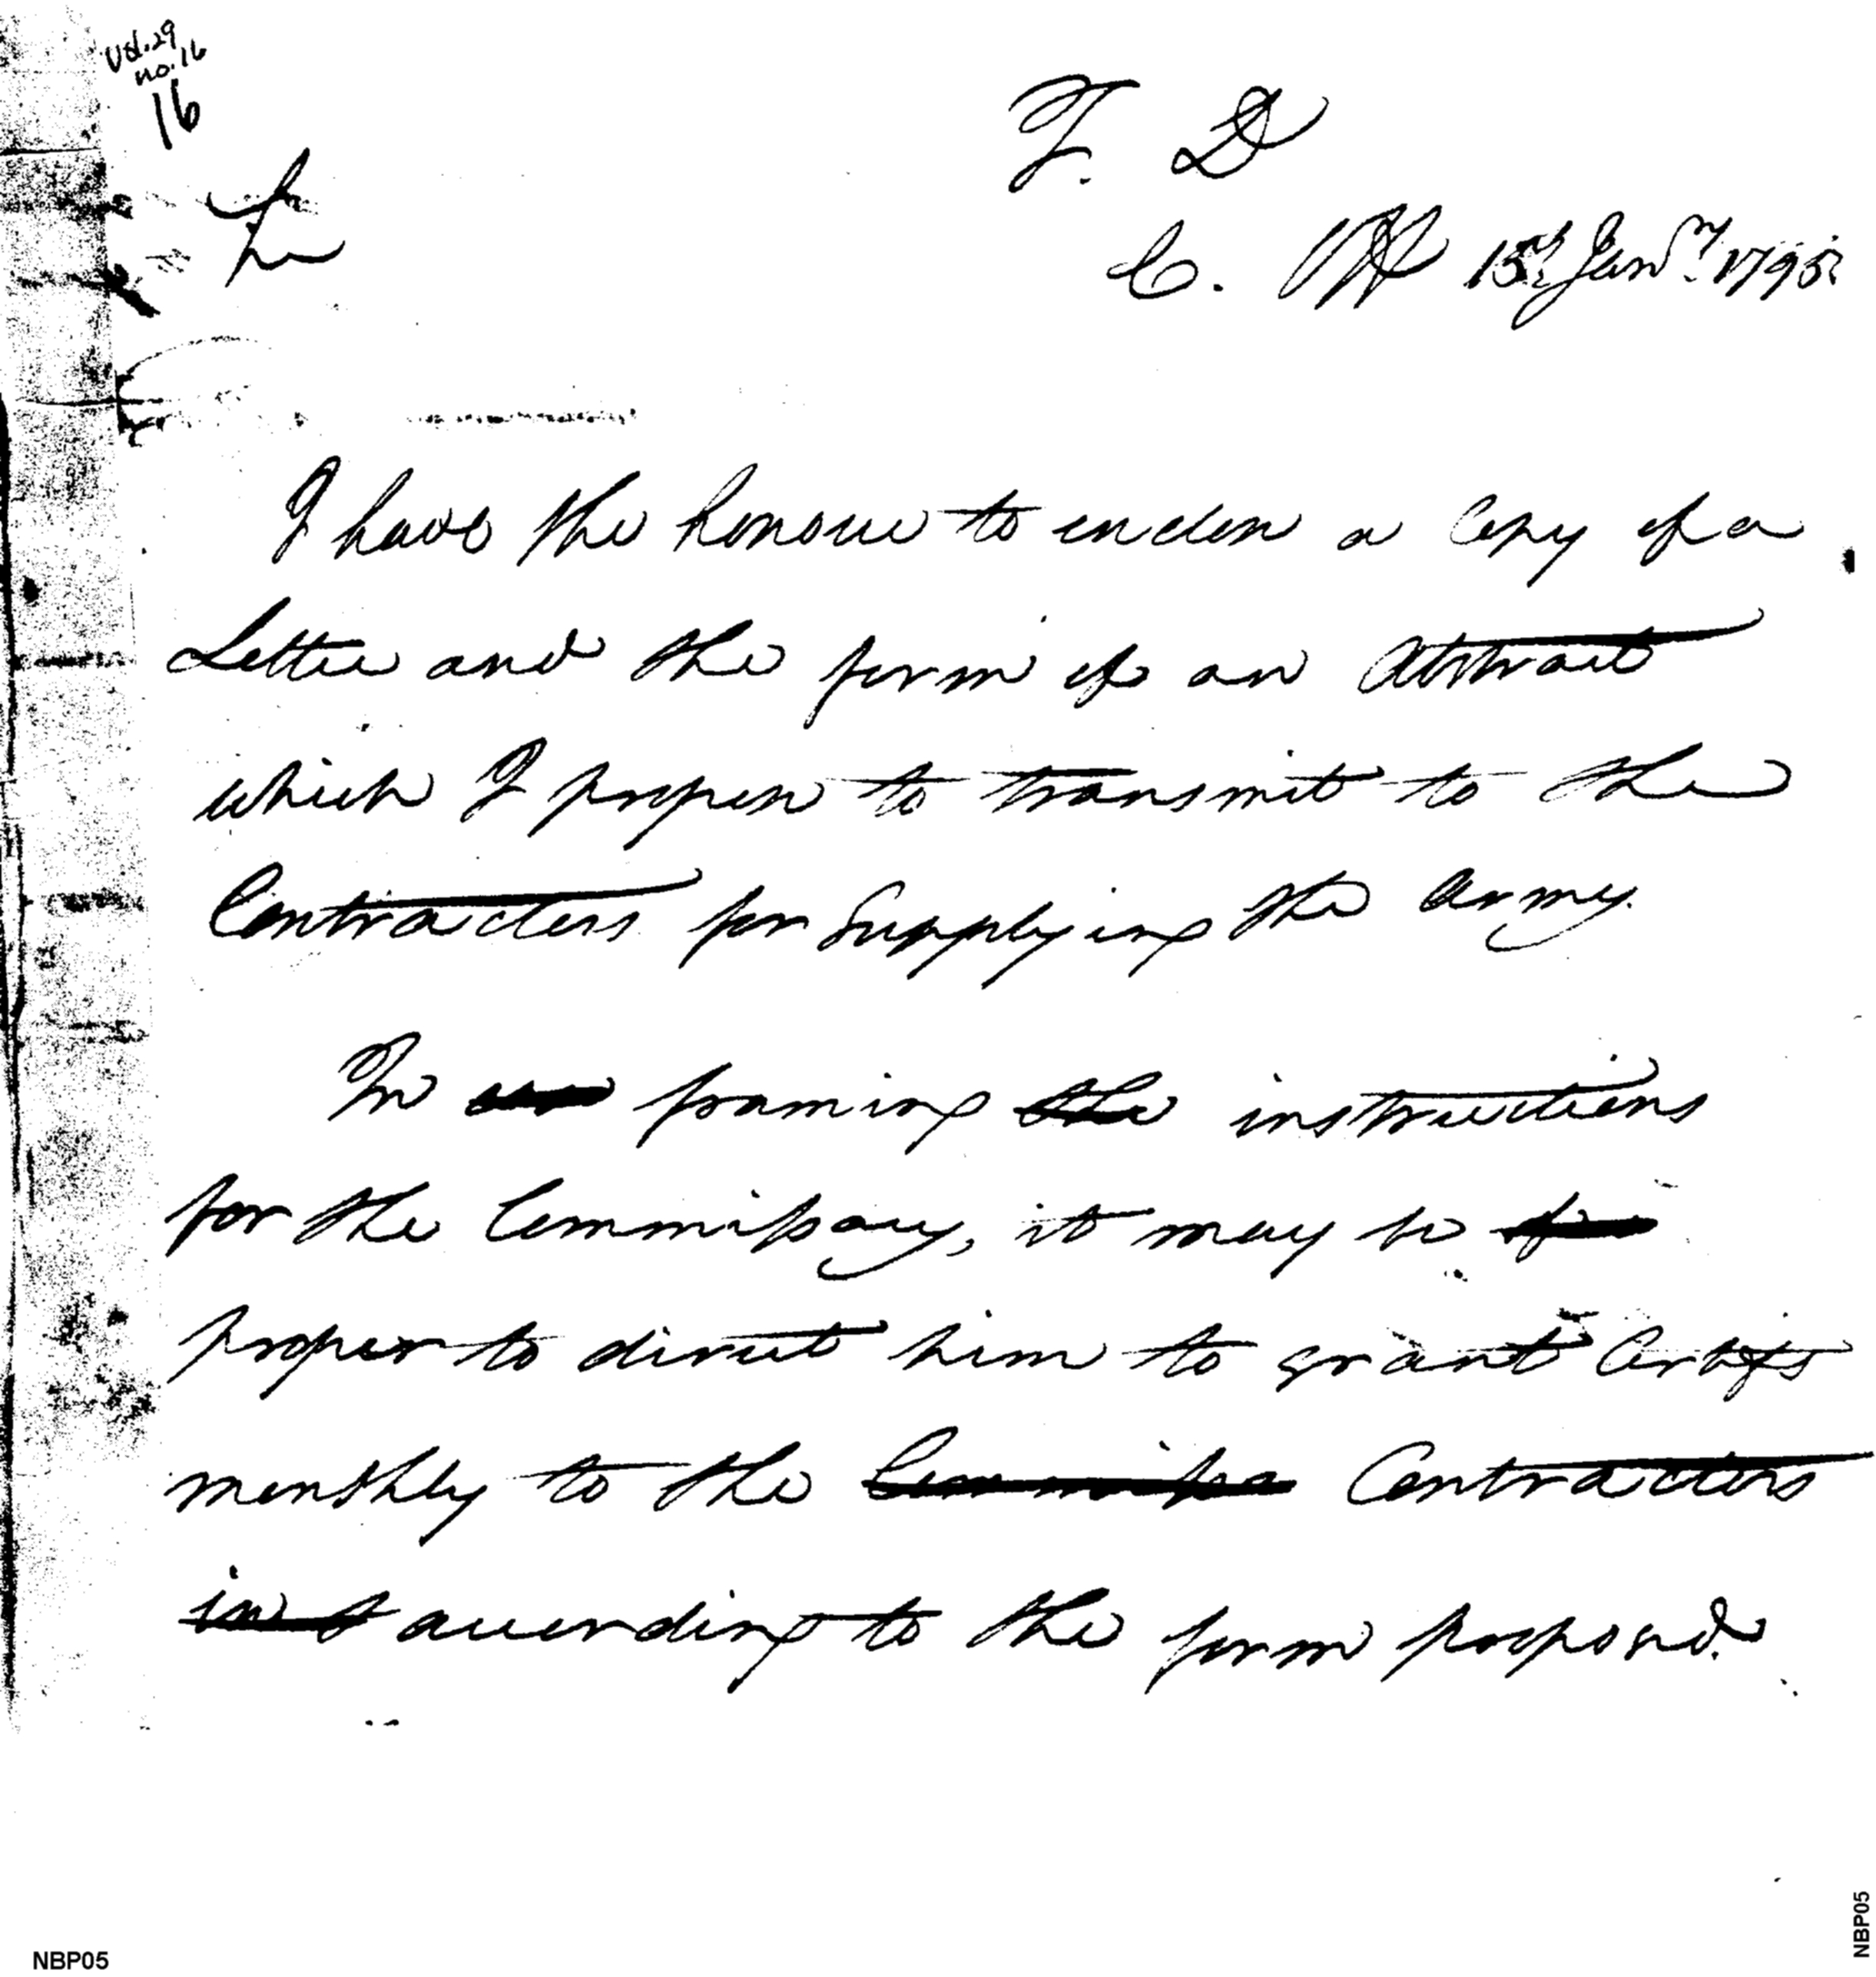 Vol. 29
no. 16
16
T. D
C. Off 15th. Jany. 1795.
I have the honour to enclose a Copy of a
Letter and the form of an Abstract
which I propose to transmit to the
Contractors for Supplying the Army.
In framing the instructions
for the Commissary, it may be
proper to direct him to grant Certifs
monthly to the Commissa Contractors
in t according to the form proposed.
NBP05
NBP05